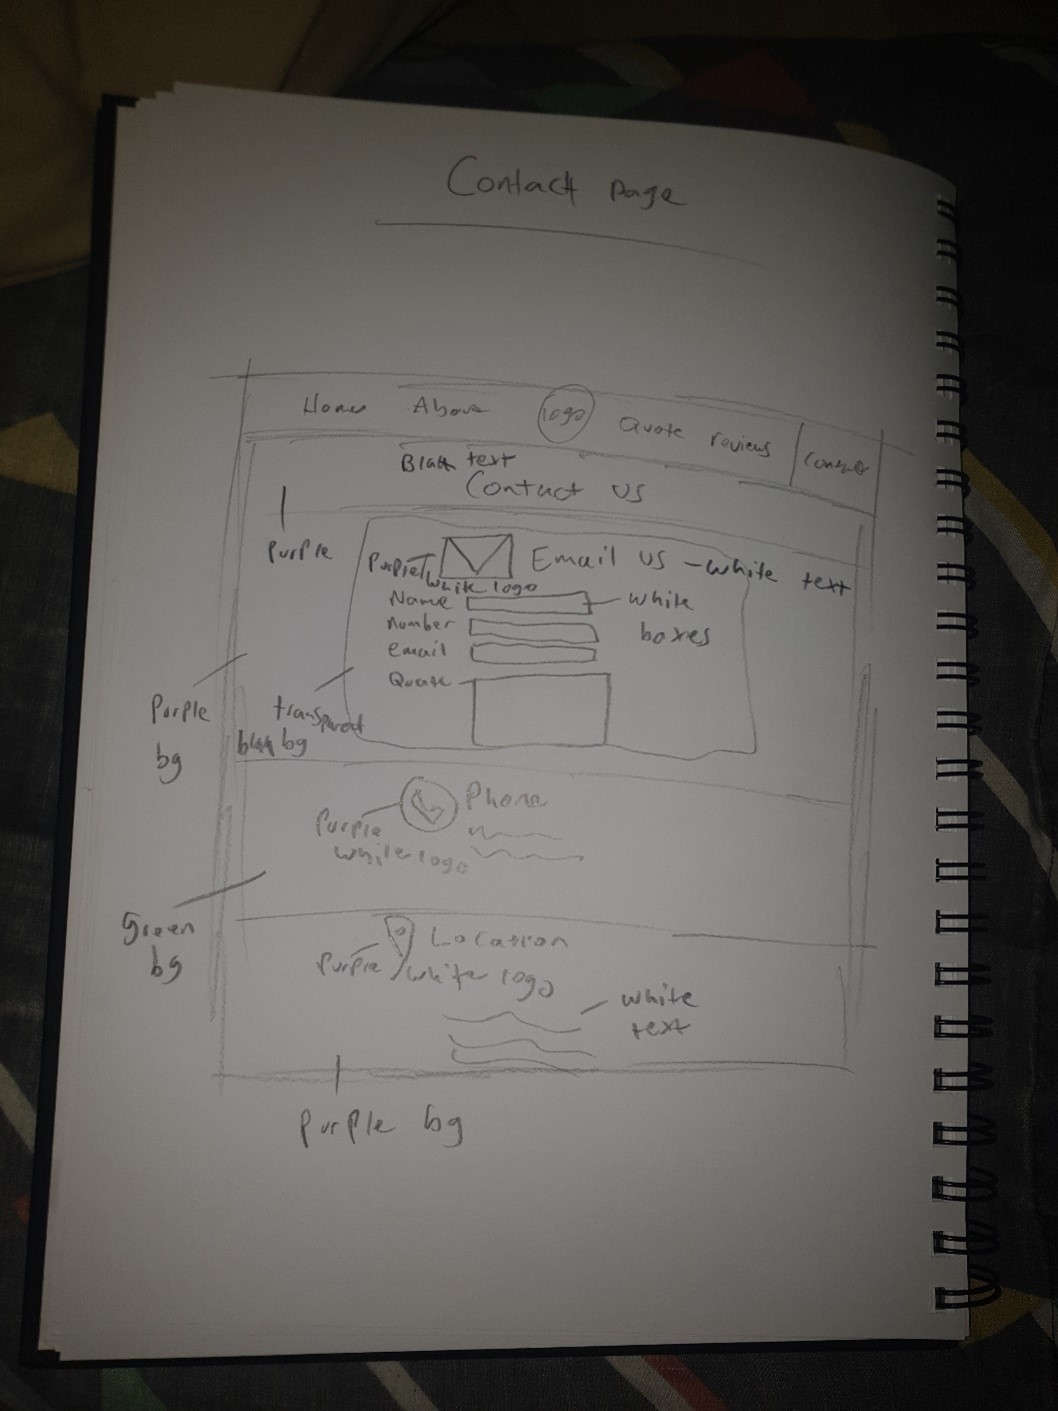 Contact page
Home About logo Quote reviews Contact
Black text
Contact us
Purple
Purple white logo Email us - white text
Name white
Number boxes
email
Quote
Purple
bg
transparent
black bg
Phone
Purple
white logo
Green
bg
Location
Purple white logo
white
text
Purple bg